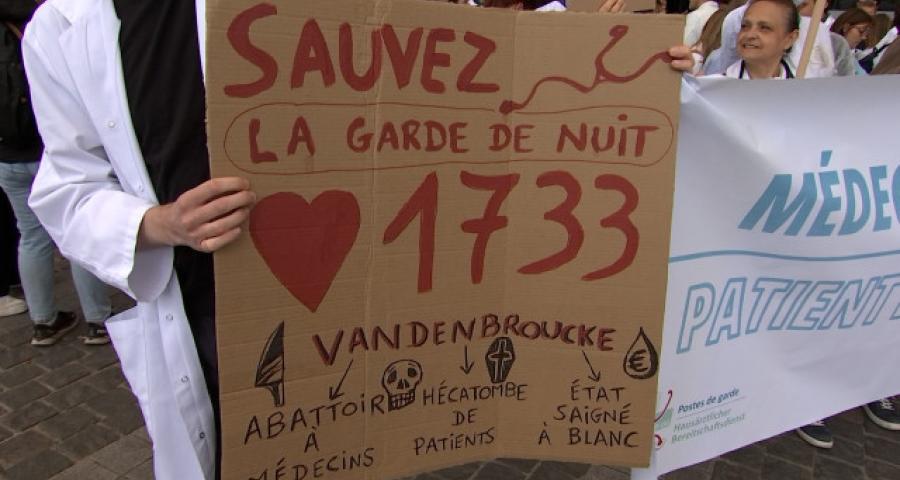 SAUVEZ
LA GARDE DE NUIT
1733
VANDENBROUCKE
ABATTOIR
À
MÉDECINS
HÉCATOMBE
DE
PATIENTS
€
ÉTAT
SAIGNÉ
À BLANC
MÉDEC
PATIENT
Postes de garde
Hausärztlicher
Bereitschaftsdienst